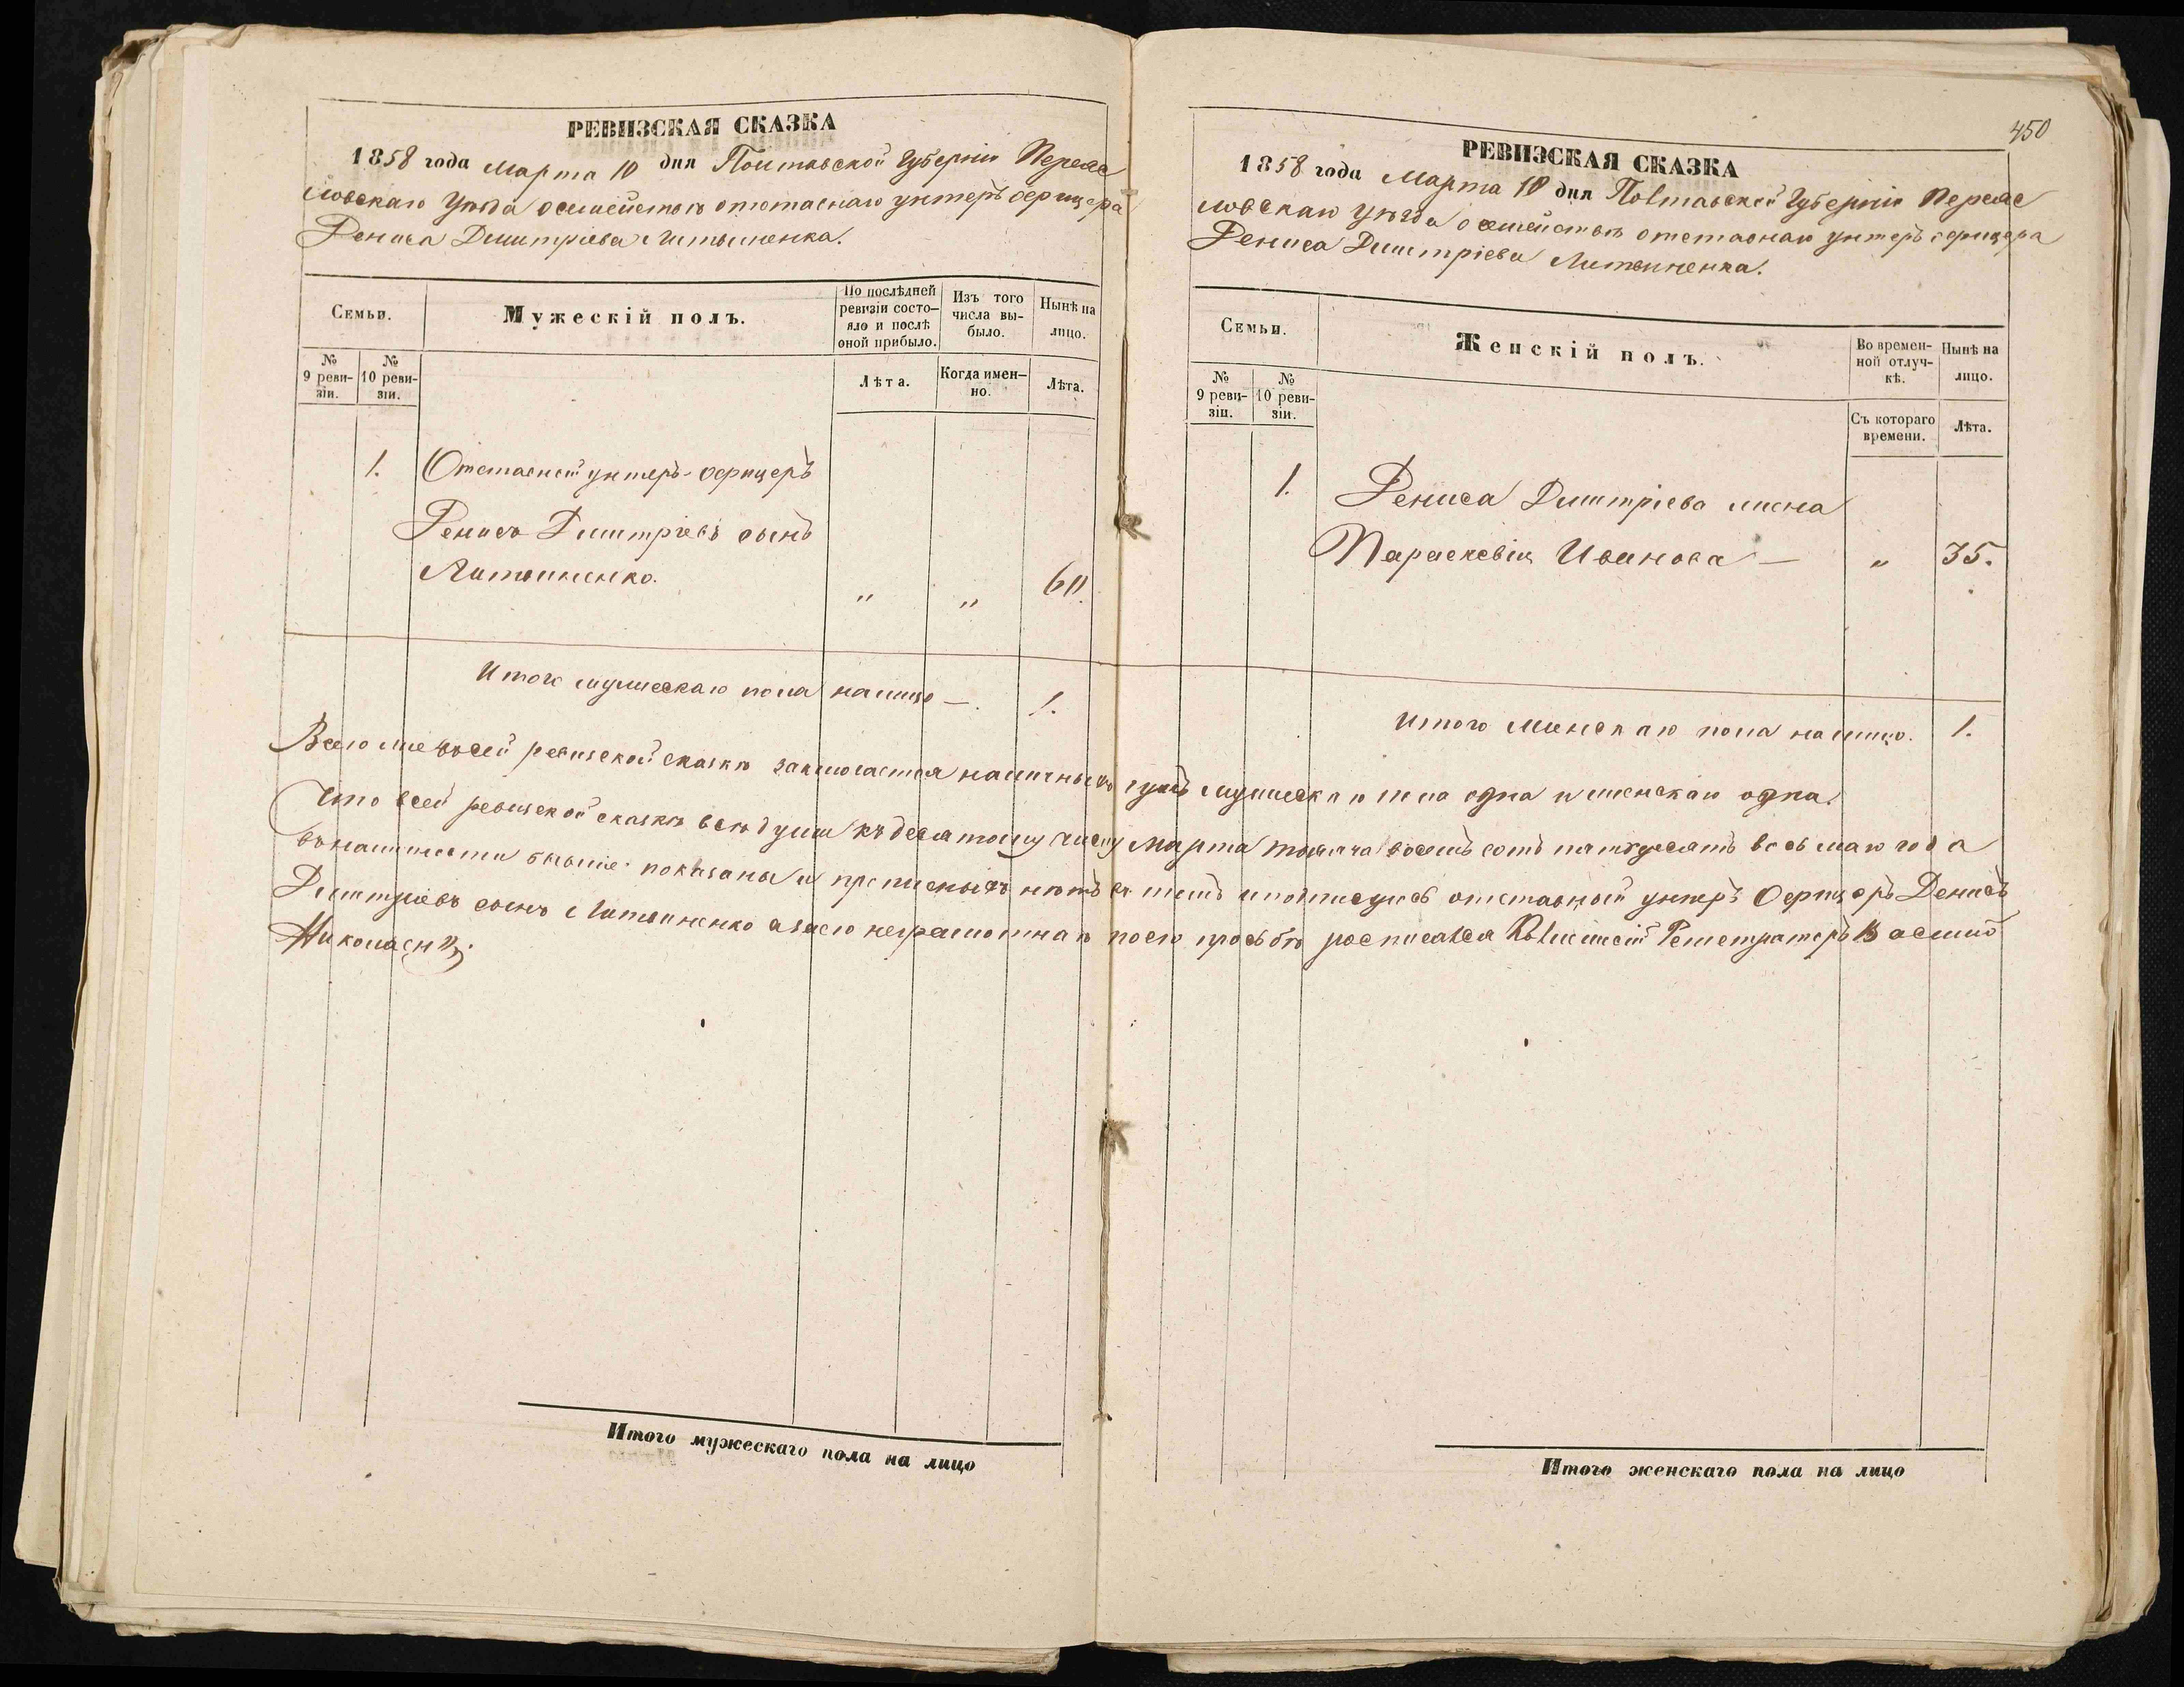 РЕВИЗСКАЯ СКАЗКА
1858 года Марта 10 дня Полтавской Губерніи Переяс
ловскаго Уѣзда о семействѣ отставнаго унтеръ офицера
Дениса Дмитріева Литвиненка.
Семьи.
Мужескій полъ.
По послѣдней ревизіи состояло и послѣ оной прибыло.
Изъ того числа выбыло.
Нынѣ на лицо.
№ 9 ревизіи.
№ 10 ревизіи.
Лѣта.
Когда именно.
Лѣта.
1. Отставной унтеръ-офицеръ
Денисъ Дмитріевъ сынъ
Литвиненко. „ „ 60.
Итого мужескаго пола налицо — 1.
450
РЕВИЗСКАЯ СКАЗКА
1858 года Марта 10 дня Полтавской Губерніи Переяс
ловскаго Уѣзда о семействѣ отставнаго унтеръ офицера
Дениса Дмитріева Литвиненка.
Семьи.
Женскій полъ.
Во временной отлучкѣ.
Нынѣ на лицо.
№ 9 ревизіи.
№ 10 ревизіи.
Съ котораго времени.
Лѣта.
1. Дениса Дмитріева жена
Параскевія Иванова — „ 35.
Итого женскаго пола налицо. 1.
Всего же въ сей ревизской сказкѣ заключается наличныхъ душъ мужеска пола одна и женскаго одна.
Что в сей ревизской сказкѣ всѣ души къ десятому числу Марта тысяча восемъ сотъ пятдесятъ восьмаго года
въ наличности бывшіе показаны и прописныхъ нѣтъ въ томъ и подписуюсь отставной унтеръ Офицеръ Денисъ
Дмитріевъ сынъ Литвиненко а за его неграмотнаго по его просьбѣ росписался Колежскій Регестраторъ Василій
Итого мужескаго пола на лицо
Итого женскаго пола на лицо